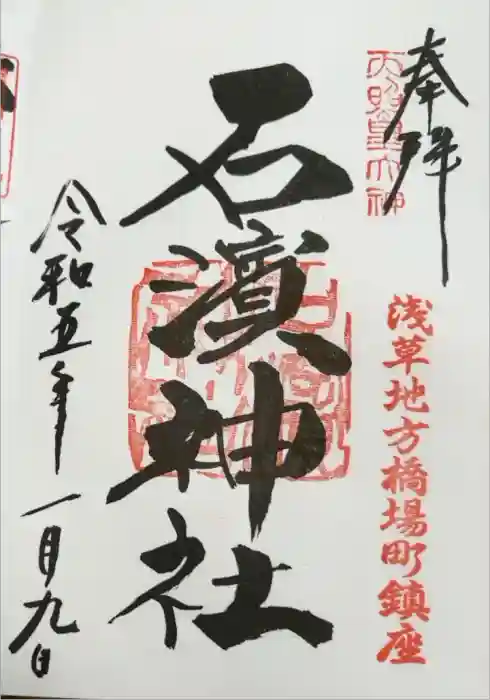 奉拝
天照皇大神
浅草地方橋場町鎮座
石濱神社
令和五年
一月九日